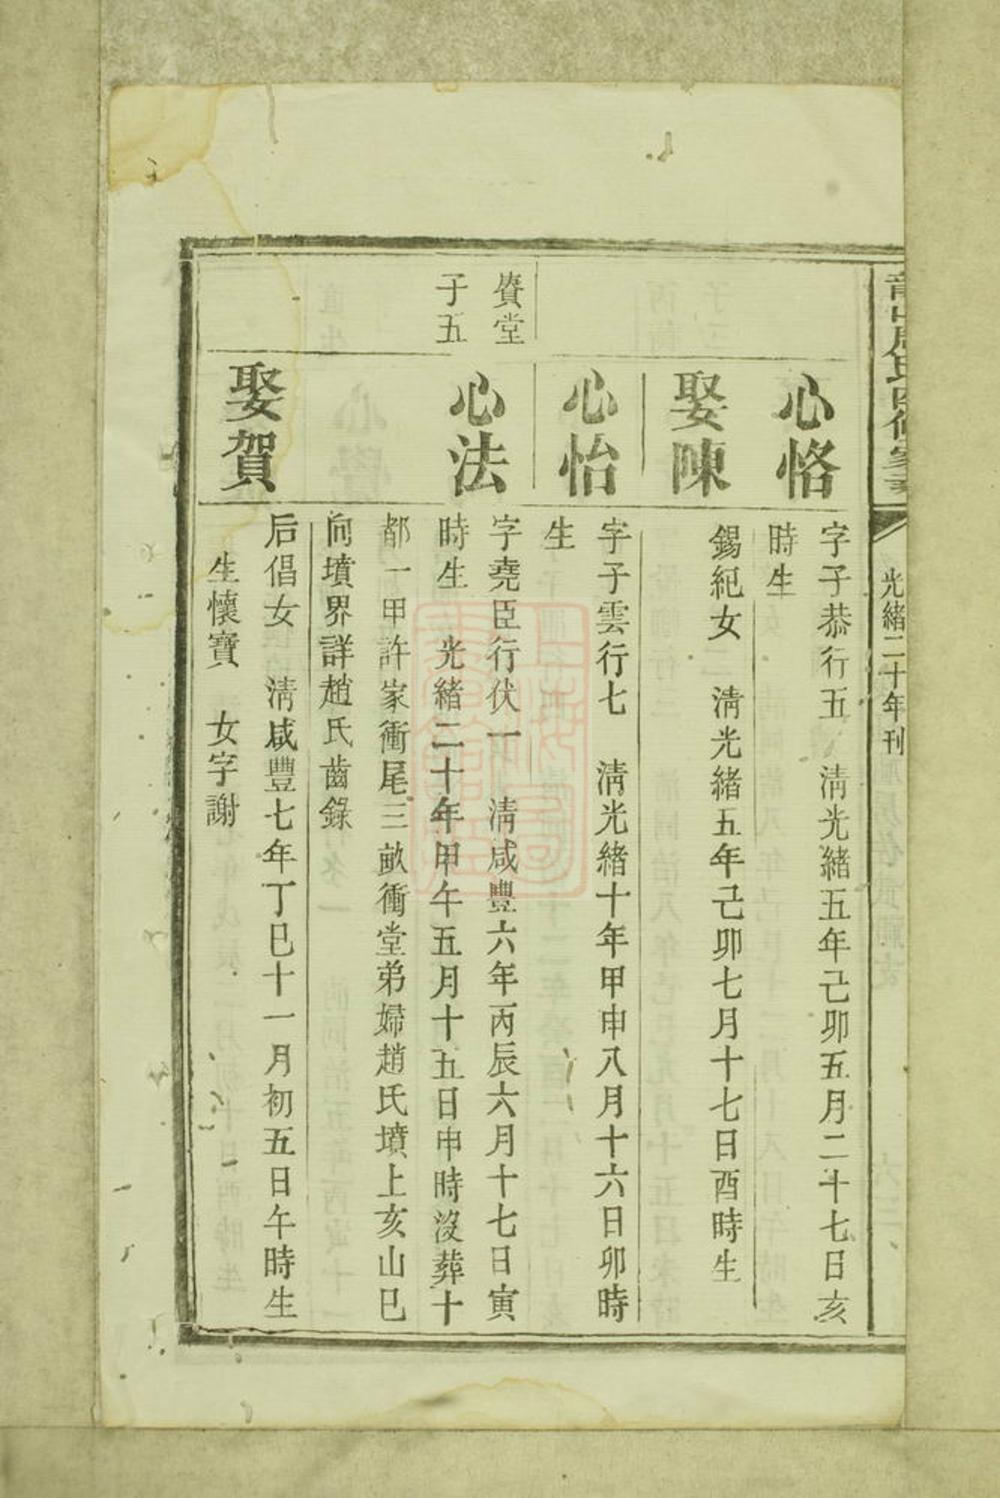 光緒二十年刊
心恪
字子恭行五　淸光緒五年己卯五月二十七日亥
時生
娶陳
錫紀女　淸光緒五年己卯七月十七日酉時生
心怡
字子雲行七　淸光緒十年甲申八月十六日卯時
生
賡堂
子五
心法
字堯臣行伏一　淸咸豐六年丙辰六月十七日寅
時生　光緒二十年甲午五月十五日申時沒葬十
都一甲許家衝尾三畝衝堂弟婦趙氏墳上亥山巳
向墳界詳趙氏齒錄
娶賀
后倡女　淸咸豐七年丁巳十一月初五日午時生
生懷寶　女字謝